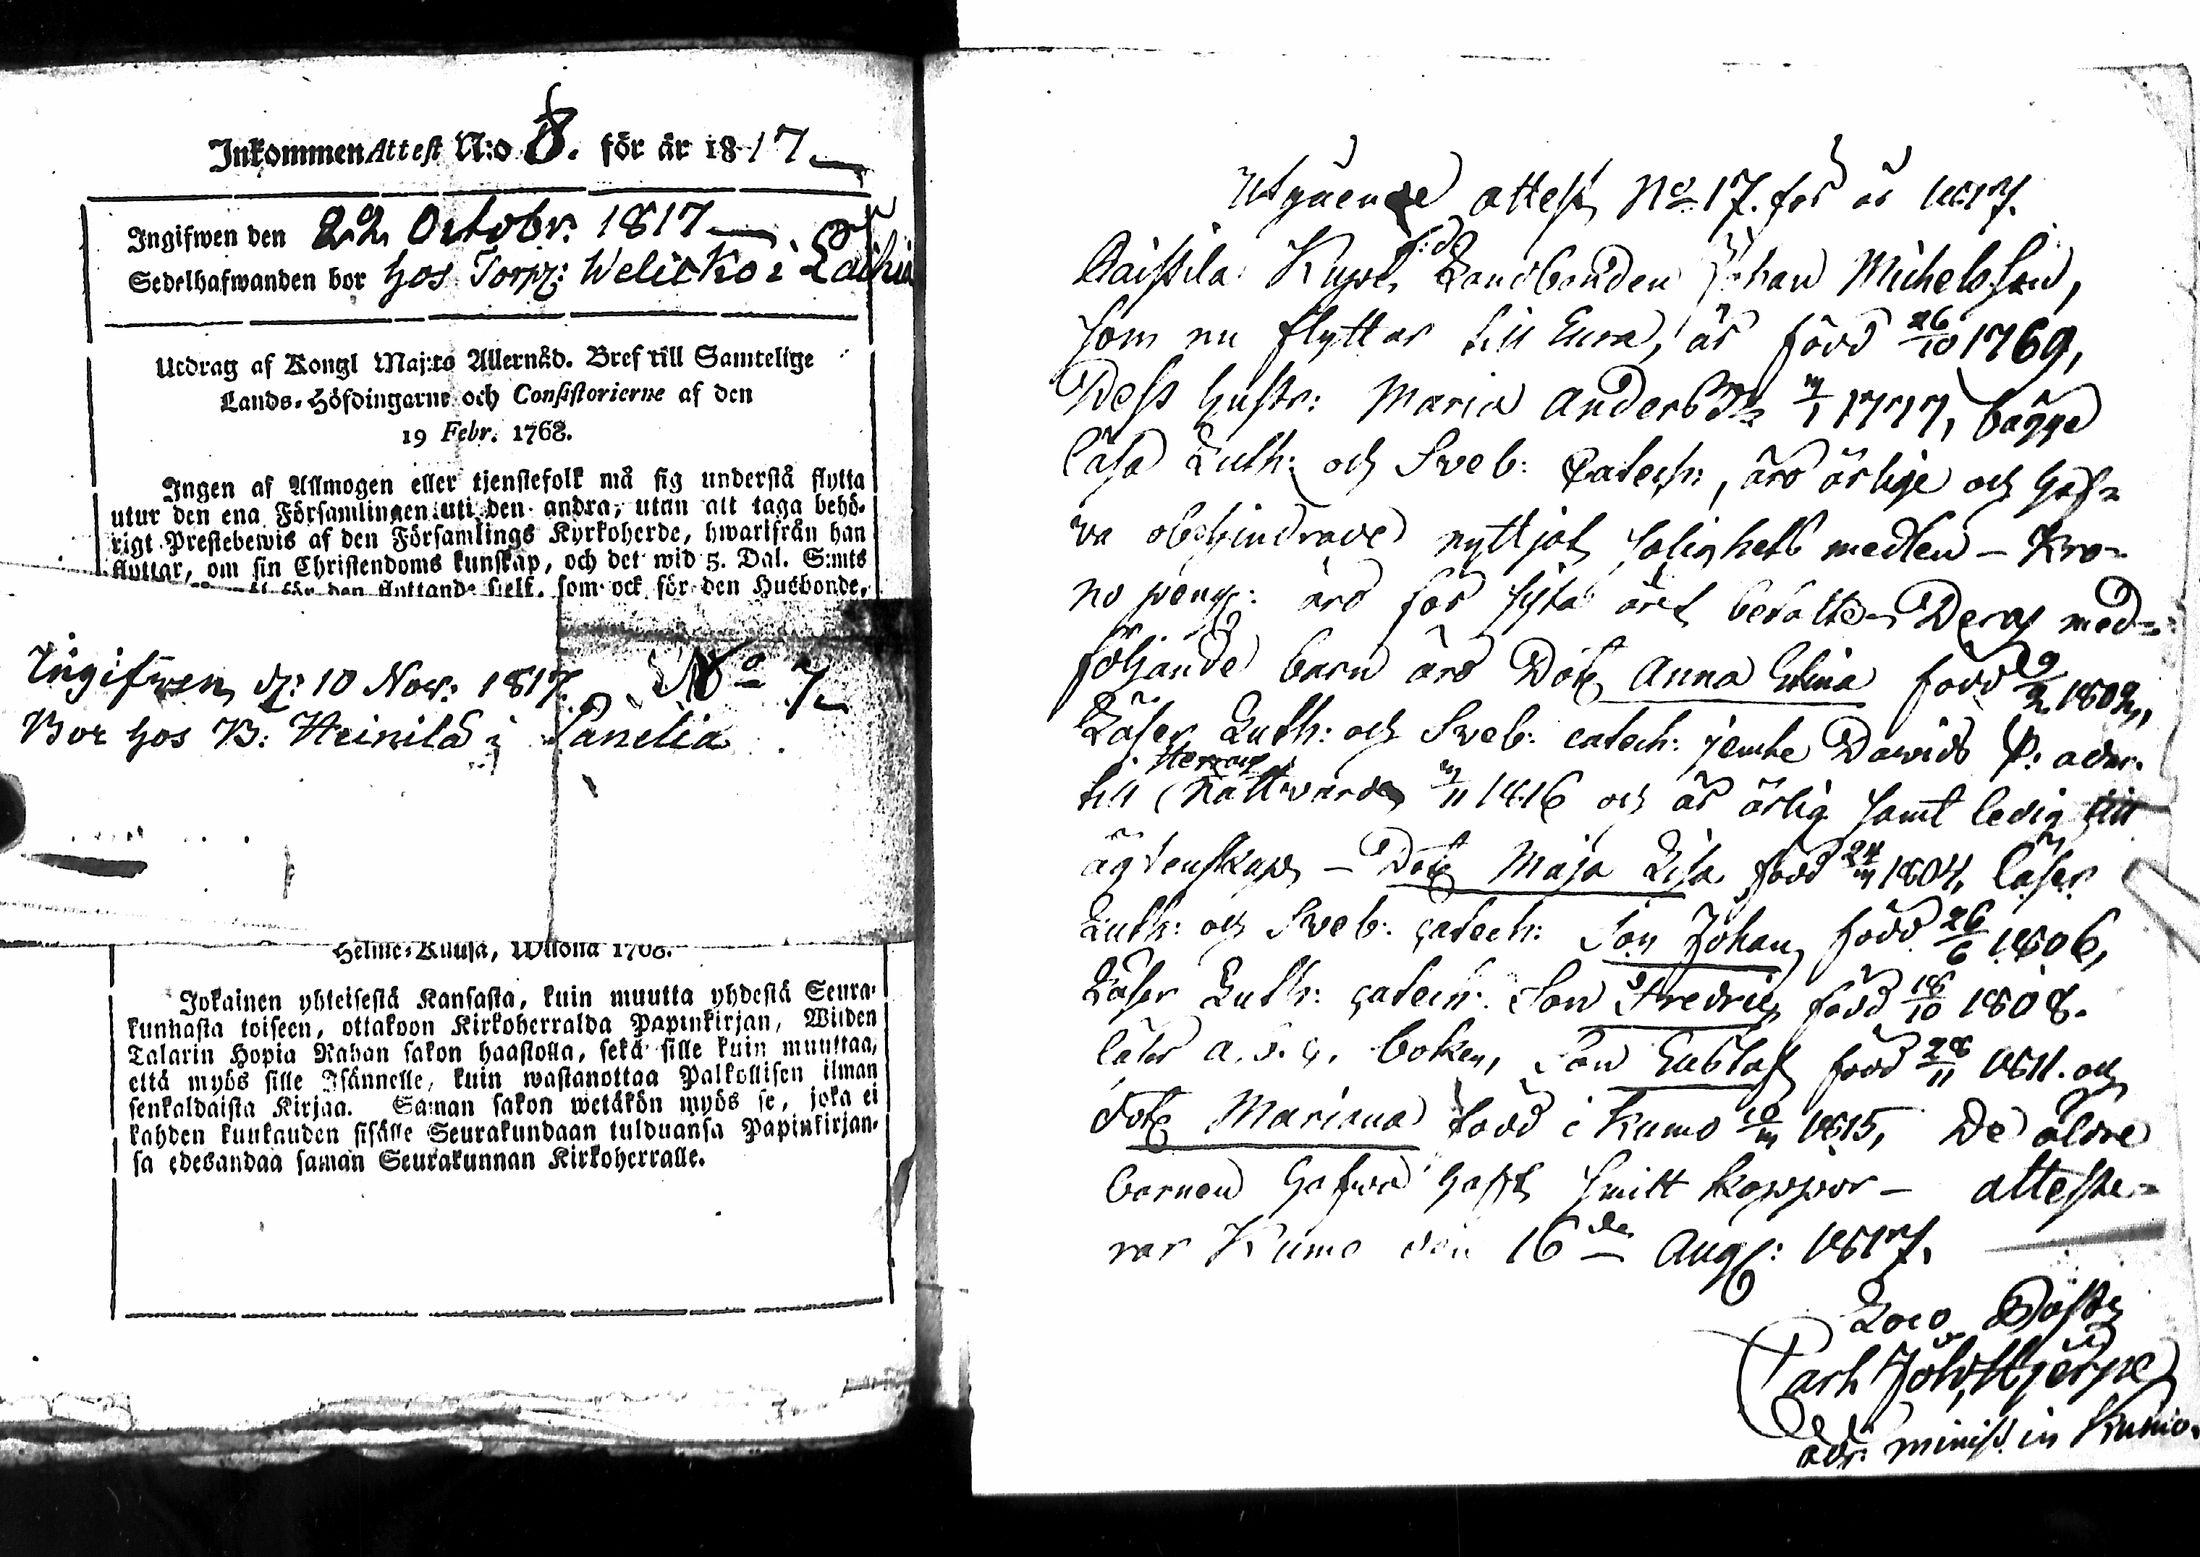 Inkommen Attest N:o 8. för år 1817
Ingifwen den 22 Octobr. 1817
Sedelhafwanden bor hos Torp: Welisko i
Utdrag af Kongl Maj:ts Allernåd. Bref till Samtelige
Lands-Höfdingarne och Consistorierne af den
19 Febr. 1768.
Ingen af Allmogen eller tjenstefolk må sig understå flytta
utur den ena Församlingen uti den andra, utan att taga behö-
rigt Prestebewis af den Församlings Kyrkoherde, hwarifrån han
flyttar, om sin Christendoms kunskap, och det wid 5. Dal. S:mts
för den flyttande sielf, som ock för den Husbonde,
Ingifwen d: 10 Nov: 1817. No 7
Bor hos B: Heinilä i Panelia
Helme-Kuusa, Wuona 1768.
Jokainen yhteisestä Kansasta, kuin muutta yhdestä Seura-
kunnasta toiseen, ottakoon Kirkoherralda Papinkirjan, Wiiden
Talarin Hopia Rahan sakon haastolla, sekä sille kuin muuttaa,
että myös sille Isännelle, kuin wastanottaa Palkollisen ilman
senkaldaista Kirjaa. Saman sakon wetäkön myös se, joka ei
kahden kuukauden sisälle Seurakundaan tulduansa Papinkirjan-
sa edesandaa saman Seurakunnan Kirkoherralle.
Utgående attest No 17. för år 1817.
Kaisila Landbonden Johan Michelsson,
som nu flyttar till Eura, är född 26/10 1769,
Dess hustr: Maria Andersdr 7/1 1777, bägge
läsa Luth: och Sveb: Catech:, äro ärlige och haf-
va obehindrade nyttjat salighets medlen – Kro-
no peng: äro för sista året betalte – Deras med-
följande barn äro Dotr Anna Elina född 9/2 1802,
Läser Luth: och Sveb: catech: jemte Davids P:
till Herrans Nattvard 7/11 1816 och är ärlig samt ledig till
ägtenskap – Dotr Maja Lisa född 24/7 1804, läser
Luth: och Sveb: catech: Son Johan född 26/6 1806,
Läser Luth: catech: Son Fredric född 18/10 1808.
läser a. b. c. boken, Son Gustaf född 28/11 1811. och
dotr Mariana född i Kumo 10/7 1815, De äldre
barnen hafva haft smitt koppor – atteste-
rar Kumo den 16de Aug: 1817.
Loco Past:
Carl Joh. Hjerpe
adj: minist. in Kumo.